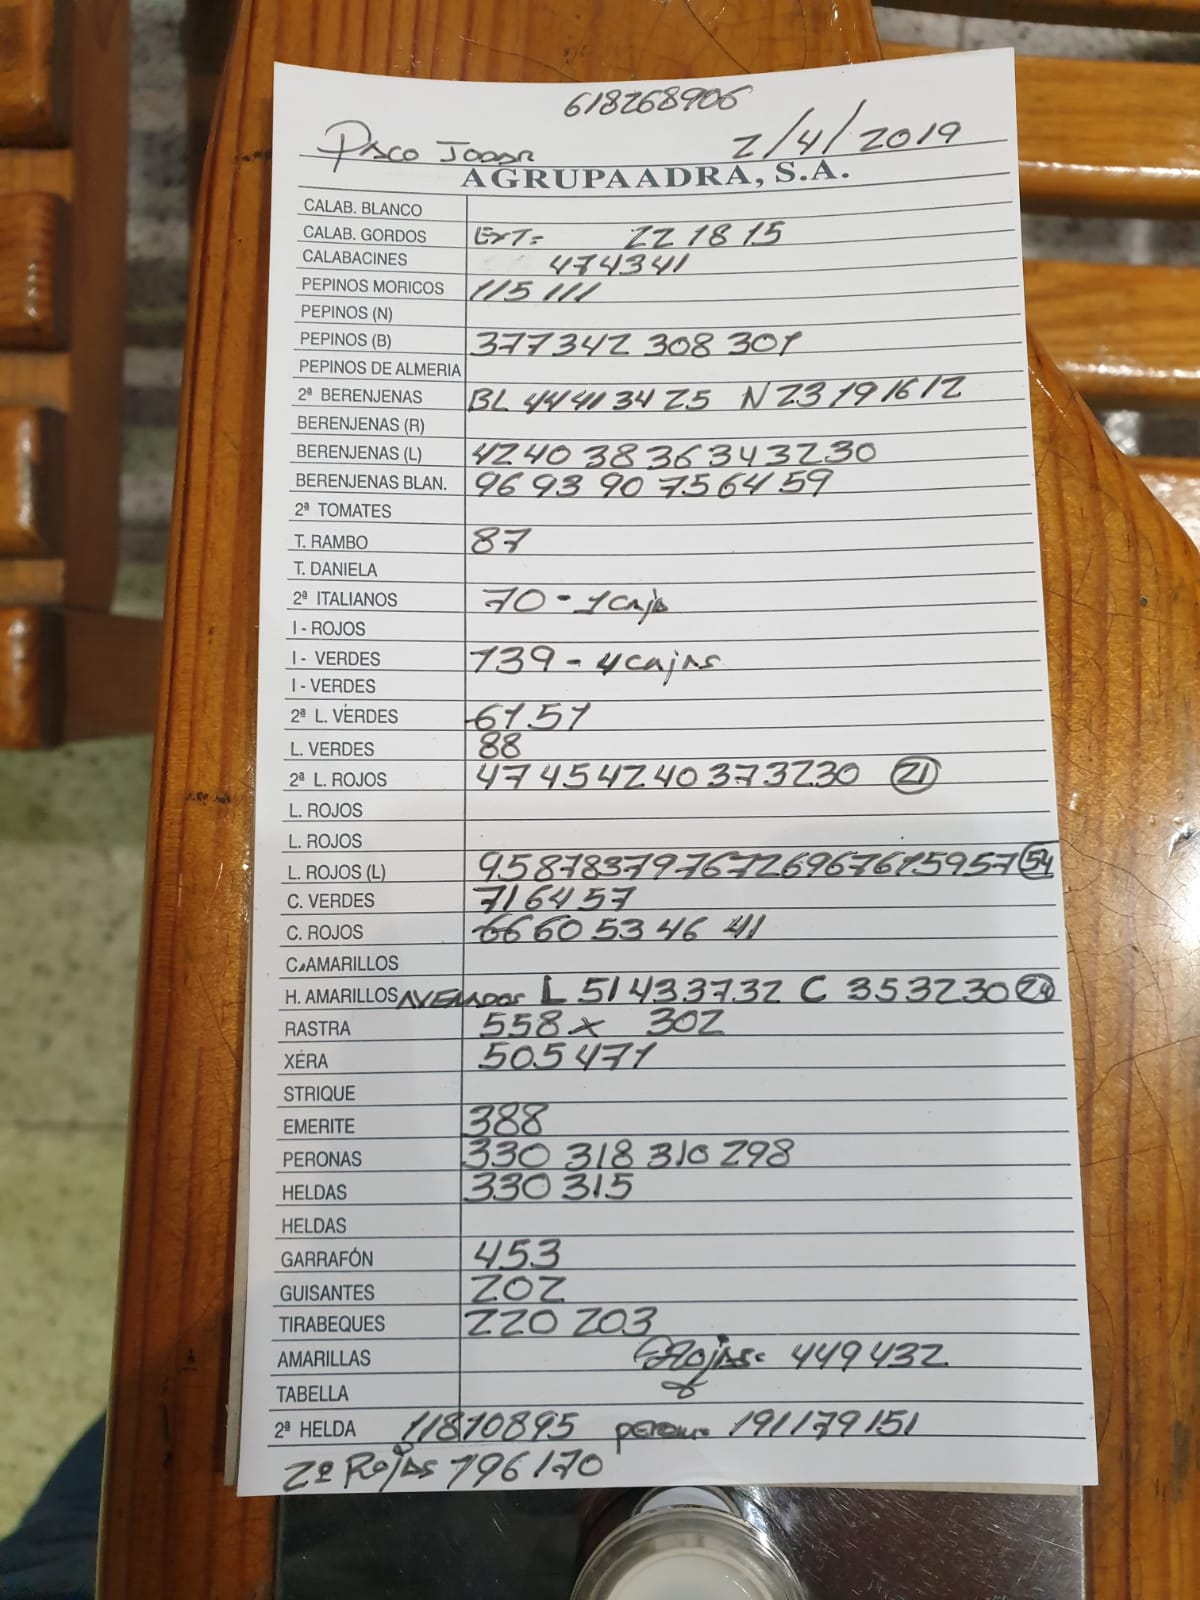 618268906
Paco Jodar 2/4/2019
AGRUPAADRA, S.A.
CALAB. BLANCO
CALAB. GORDOS EXT= 22 18 15
CALABACINES 47 43 41
PEPINOS MORICOS 115 111
PEPINOS (N)
PEPINOS (B) 377 342 308 301
PEPINOS DE ALMERIA
2ª BERENJENAS BL 44 41 34 25 N 23 19 16 12
BERENJENAS (R)
BERENJENAS (L) 42 40 38 36 34 32 30
BERENJENAS BLAN. 96 93 90 75 64 59
2ª TOMATES
T. RAMBO 87
T. DANIELA
2ª ITALIANOS 70 - 1 caja
I - ROJOS
I - VERDES 139 - 4 cajas
I - VERDES
2ª L. VERDES 61 51
L. VERDES 88
2ª L. ROJOS 47 45 42 40 37 32 30 21
L. ROJOS
L. ROJOS
L. ROJOS (L) 95 87 83 79 76 72 69 67 61 59 57 54
C. VERDES 71 64 57
C. ROJOS 66 60 53 46 41
C. AMARILLOS
H. AMARILLOS L 51 43 37 32 C 35 32 30
RASTRA 558 x 302
XERA 505 471
STRIQUE
EMERITE 388
PERONAS 330 318 310 298
HELDAS 330 315
HELDAS
GARRAFÓN 453
GUISANTES 202
TIRABEQUES 220 203
AMARILLAS Rojas= 449 432
TABELLA
2ª HELDA 118 108 95 perona= 191 179 151
2ª Rojas 196 170